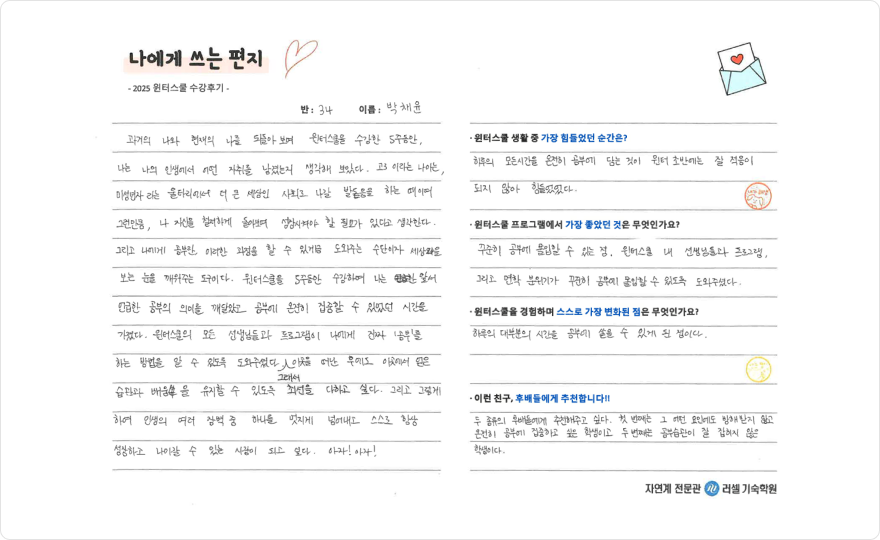 나에게 쓰는 편지
- 2025 윈터스쿨 수강후기 -
반 : 34 이름 : 박채윤
과거의 나와 현재의 나를 되돌아보며 윈터스쿨을 수강한 5주동안,
나는 나의 인생에서 어떤 자취를 남겼는지 생각해 보았다. 고3 이라는 나이는,
미성년자 라는 울타리에서 더 큰 세상인 사회로 나갈 발돋움을 하는 때이며
그런만큼, 나 자신을 철저하게 돌아보며 성장시켜야 할 필요가 있다고 생각한다.
그리고 나에게 공부란, 이러한 과정을 할 수 있게끔 도와주는 수단이자 세상을
보는 눈을 깨워주는 도구이다. 윈터스쿨을 5주동안 수강하며 나는 앞서
언급한 공부의 의미를 깨달았고 공부에 온전히 집중할 수 있었던 시간을
가졌다. 윈터스쿨의 모든 선생님들과 프로그램이 나에게 진짜 '공부'를
하는 방법을 알 수 있도록 도와주었다. 그래서 이곳을 떠난 후에도 이곳에서 얻은
습관과 배움을 유지할 수 있도록 최선을 다하고 싶다. 그리고 그렇게
하여 인생의 여러 장벽 중 하나를 멋지게 넘어내고 스스로 항상
성장하고 나아갈 수 있는 사람이 되고 싶다. 아자! 아자!
· 윈터스쿨 생활 중 가장 힘들었던 순간은?
하루의 모든시간을 온전히 공부에 담는 것이 윈터 초반에는 잘 적응이
되지 않아 힘들었었다.
· 윈터스쿨 프로그램에서 가장 좋았던 것은 무엇인가요?
꾸준히 공부에 몰입할 수 있는 점. 윈터스쿨 내 선생님들과 프로그램,
그리고 면학 분위기가 꾸준히 공부에 몰입할 수 있도록 도와주셨다.
· 윈터스쿨을 경험하며 스스로 가장 변화된 점은 무엇인가요?
하루의 대부분의 시간을 공부에 쏟을 수 있게 된 점이다.
· 이런 친구, 후배들에게 추천합니다!!
두 종류의 후배들에게 추천해주고 싶다. 첫 번째는 그 어떤 요인에도 방해받지 않고
온전히 공부에 집중하고 싶은 학생이고 두 번째는 공부습관이 잘 잡히지 않은
학생이다.
자연계 전문관 러셀 기숙학원